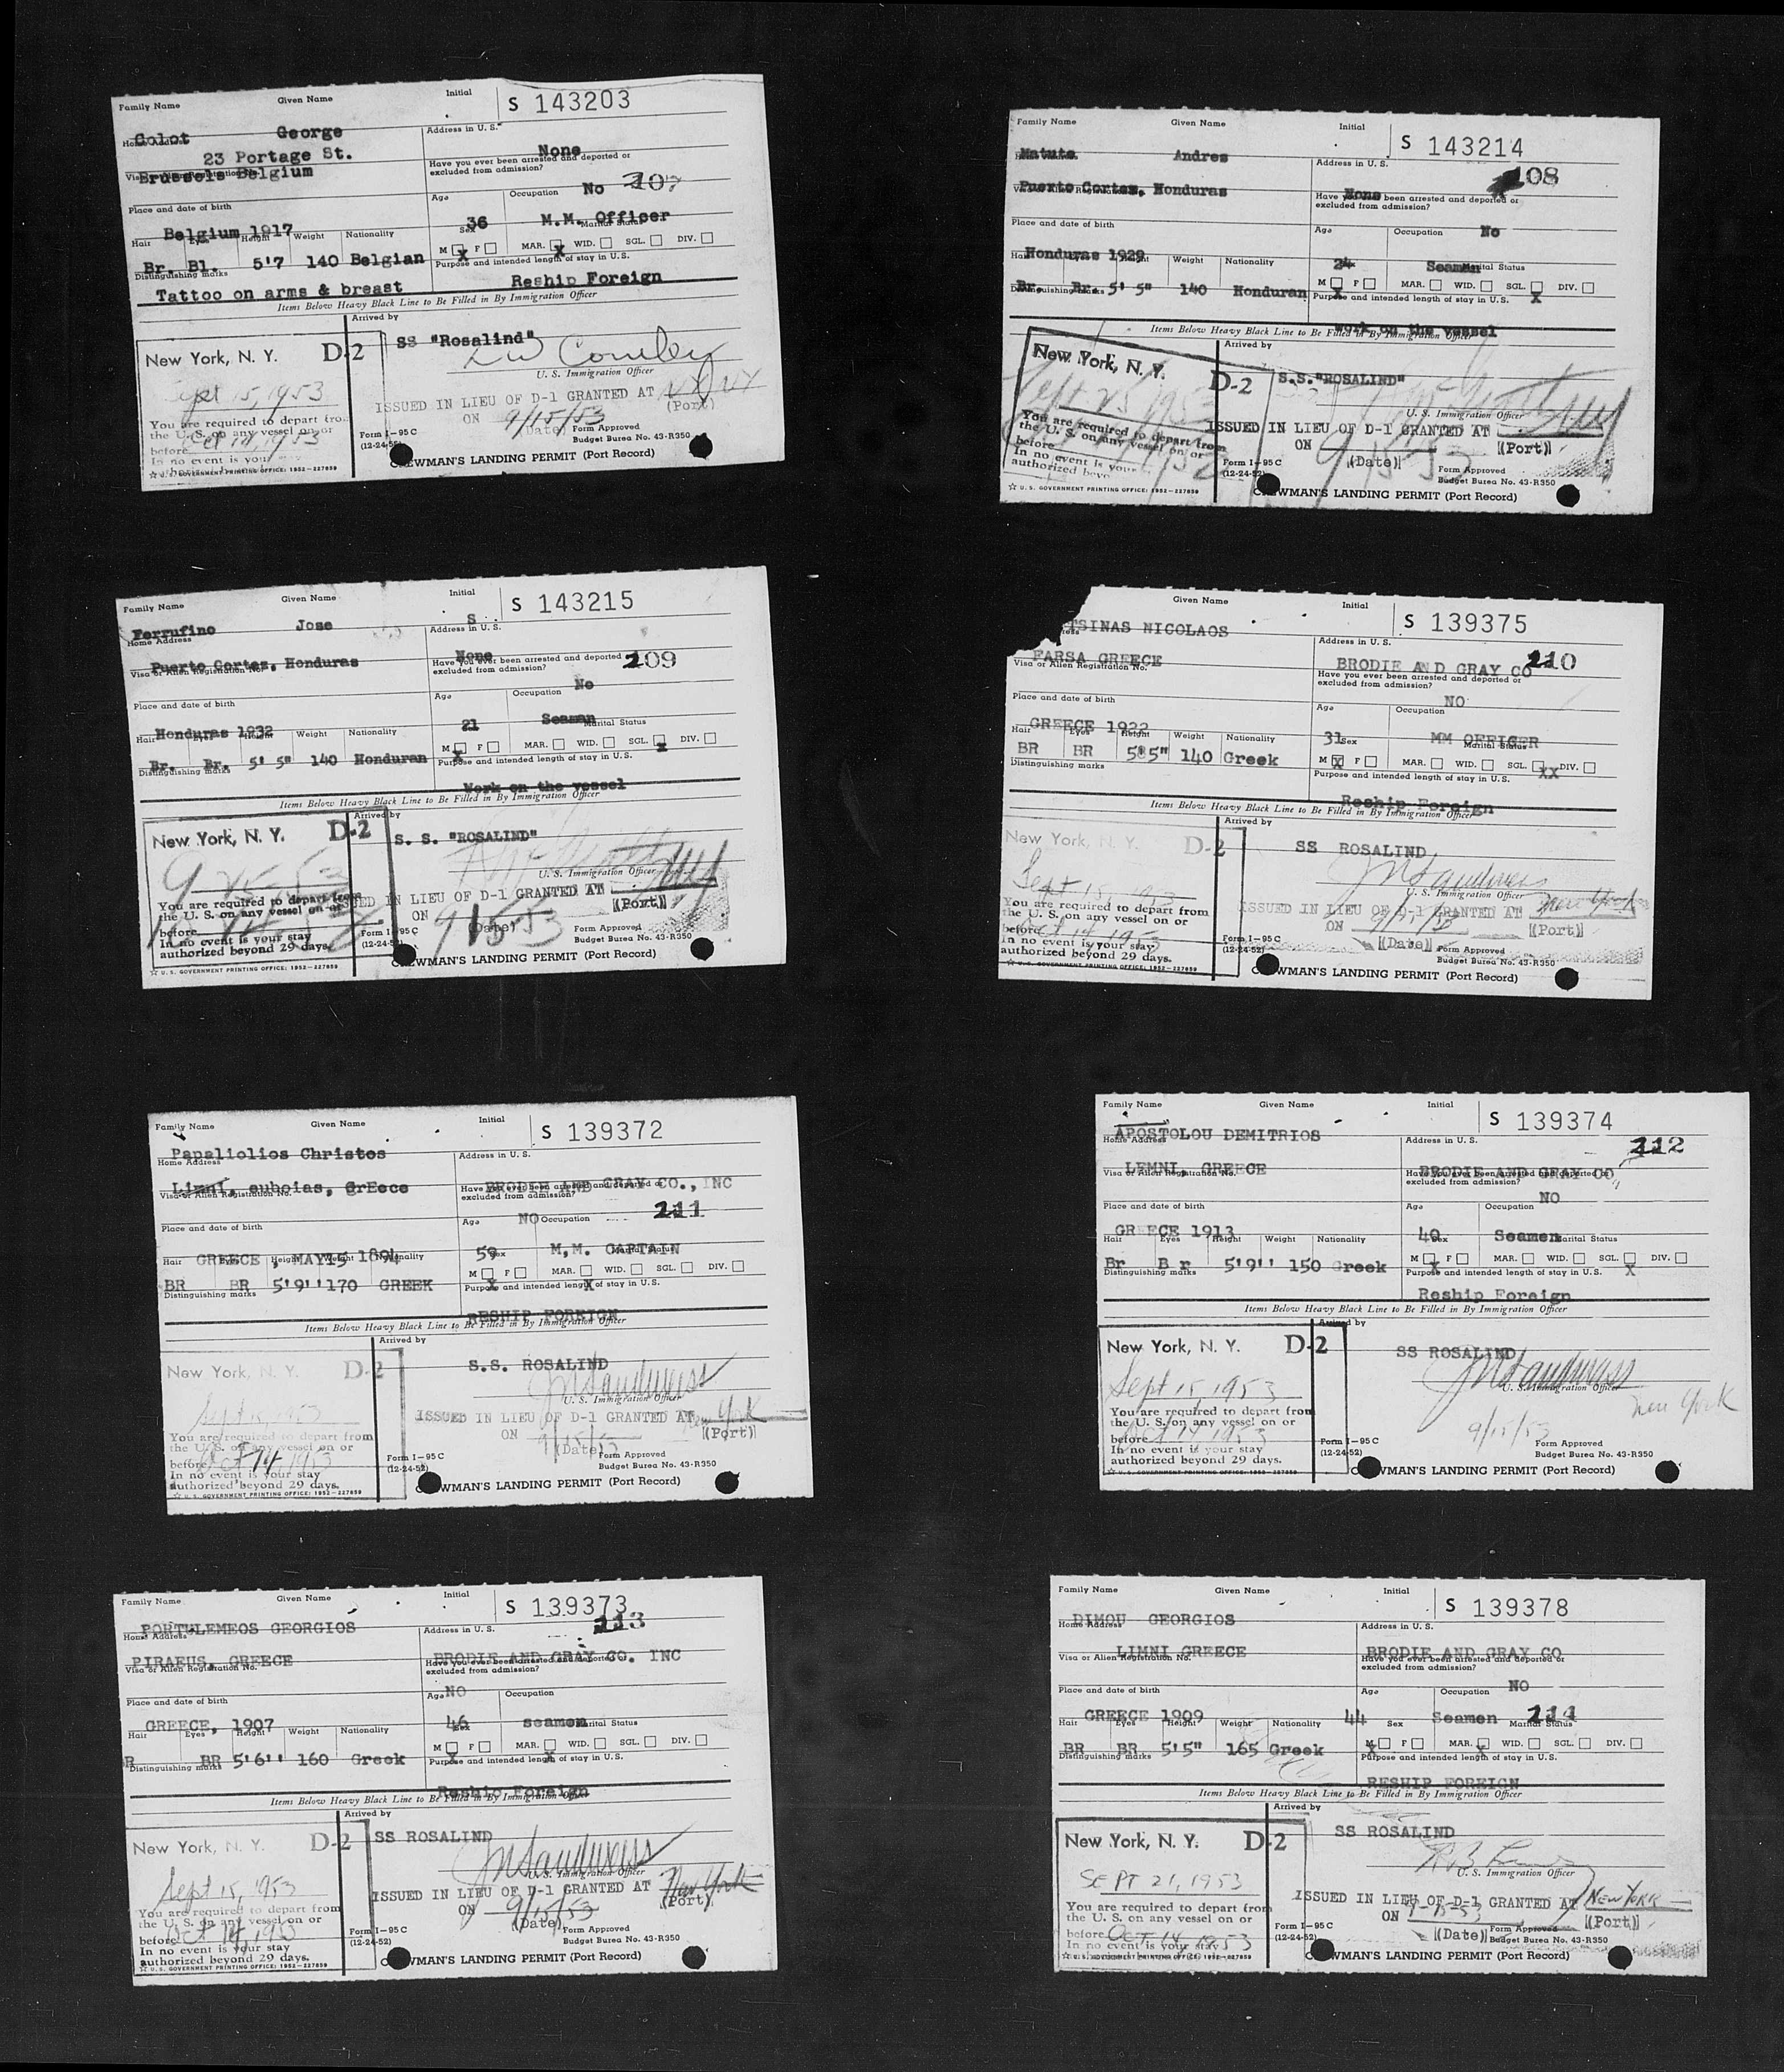 Family Name Given Name Initial S 143203
Colot George
Home Address Address in U. S.
23 Portage St. None
Brussels Belgium
Have you ever been arrested and deported or excluded from admission?
No 207
Place and date of birth Age Occupation
Belgium 1917 36 M.M. Officer
Hair Eyes Height Weight Nationality Sex Marital Status
M F MAR. WID. SGL. DIV.
X X
Br. Bl. 5'7 140 Belgian
Distinguishing marks Purpose and intended length of stay in U.S.
Tattoo on arms & breast Reship Foreign
Items Below Heavy Black Line to Be Filled in By Immigration Officer
Arrived by
SS "Rosalind"
New York, N. Y. D-2
U. S. Immigration Officer
Sept 15, 1953
ISSUED IN LIEU OF D-1 GRANTED AT NY NY
(Port)
ON 9/15/53
(Date)
You are required to depart from
the U. S. on any vessel on or
before Oct 14, 1953
In no event is your
Form I-95 C
(12-24-52)
Form Approved
Budget Burea No. 43-R350
CREWMAN'S LANDING PERMIT (Port Record)
☆ U. S. GOVERNMENT PRINTING OFFICE: 1952-227859
Family Name Given Name Initial S 143214
Matute Andres
Address in U. S.
208
Puerto Cortez, Honduras None
Have you ever been arrested and deported or excluded from admission?
No
Place and date of birth Age Occupation
Honduras 1929 24 Seaman
Height Weight Nationality Marital Status
M F MAR. WID. SGL. DIV.
X X
Br. Br. 5' 5" 140 Honduran
Distinguishing marks Purpose and intended length of stay in U.S.
Work on the vessel
Items Below Heavy Black Line to Be Filled in By Immigration Officer
Arrived by
New York, N. Y. D-2
S.S."ROSALIND"
Sept 25 1953
U. S. Immigration Officer
ISSUED IN LIEU OF D-1 GRANTED AT
(Port)
ON 9 15 53
(Date)
You are required to depart from
the U. S. on any vessel on or
before
In no event is your
authorized beyond
Form I-95 C
(12-24-52)
Form Approved
Budget Burea No. 43-R350
CREWMAN'S LANDING PERMIT (Port Record)
☆ U. S. GOVERNMENT PRINTING OFFICE: 1952-227859
Family Name Given Name Initial S 143215
Ferrufino Jose S
Home Address Address in U. S.
Puerto Cortez, Honduras None
Visa or Alien Registration No.
Have you ever been arrested and deported or excluded from admission?
209
No
Place and date of birth Age Occupation
Honduras 1932 21 Seaman
Hair Eyes Height Weight Nationality Marital Status
M F MAR. WID. SGL. DIV.
X X
Br. Br. 5' 5" 140 Honduran
Distinguishing marks Purpose and intended length of stay in U.S.
Work on the vessel
Items Below Heavy Black Line to Be Filled in By Immigration Officer
Arrived by
New York, N. Y. D-2
S. S. "ROSALIND"
9 25 53
U. S. Immigration Officer
ISSUED IN LIEU OF D-1 GRANTED AT
(Port)
ON 9 15 53
(Date)
You are required to depart from
the U. S. on any vessel on or
before
In no event is your stay
authorized beyond 29 days.
Form I-95 C
(12-24-52)
Form Approved
Budget Burea No. 43-R350
CREWMAN'S LANDING PERMIT (Port Record)
☆ U. S. GOVERNMENT PRINTING OFFICE: 1952-227859
Given Name Initial S 139375
TSINAS NICOLAOS
Address in U. S.
FARSA GREECE BRODIE AND GRAY CO 210
Visa or Alien Registration No.
Have you ever been arrested and deported or excluded from admission?
NO
Place and date of birth Age Occupation
GREECE 1922 31 MM OFFICER
Hair Eyes Height Weight Nationality Sex Marital Status
M F MAR. WID. SGL. DIV.
X XX
BR BR 5'5" 140 Greek
Distinguishing marks Purpose and intended length of stay in U.S.
Reship Foreign
Items Below Heavy Black Line to Be Filled in By Immigration Officer
Arrived by
New York, N. Y. D-2
SS ROSALIND
Sept 15, 1953
U. S. Immigration Officer
ISSUED IN LIEU OF D-1 GRANTED AT New York
(Port)
ON 9/15
(Date)
You are required to depart from
the U. S. on any vessel on or
before Oct 14 1953
In no event is your stay
authorized beyond 29 days.
Form I-95 C
(12-24-52)
Form Approved
Budget Burea No. 43-R350
CREWMAN'S LANDING PERMIT (Port Record)
☆ U. S. GOVERNMENT PRINTING OFFICE: 1952-227859
Family Name Given Name Initial S 139372
Papaliolios Christos
Home Address Address in U. S.
Limni, euboias, GrEece BRODIE AND GRAY CO., INC
Visa or Alien Registration No.
Have you ever been arrested and deported or excluded from admission?
NO 211
Place and date of birth Age Occupation
GREECE, MAY15 1894 59 M,M. CAPTAIN
Hair Height Weight Nationality Sex Marital Status
M F MAR. WID. SGL. DIV.
X X
BR BR 5'9'' 170 GREEK
Distinguishing marks Purpose and intended length of stay in U.S.
RESHIP FOREIGN
Items Below Heavy Black Line to Be Filled in By Immigration Officer
Arrived by
New York, N. Y. D-2
S.S. ROSALIND
Sept 15, 1953
U. S. Immigration Officer
ISSUED IN LIEU OF D-1 GRANTED AT New York
(Port)
ON 9/15/53
(Date)
You are required to depart from
the U. S. on any vessel on or
before Oct 14, 1953
In no event is your stay
authorized beyond 29 days.
Form I-95 C
(12-24-52)
Form Approved
Budget Burea No. 43-R350
CREWMAN'S LANDING PERMIT (Port Record)
☆ U. S. GOVERNMENT PRINTING OFFICE: 1952-227859
Family Name Given Name Initial S 139374
APOSTOLOU DEMITRIOS 212
Home Address Address in U. S.
LEMNI, GREECE BRODIE AND GRAY CO,
Visa or Alien Registration No.
Have you ever been arrested and deported or excluded from admission?
NO
Place and date of birth Age Occupation
GREECE 1913 40 Seamen
Hair Eyes Height Weight Nationality Sex Marital Status
M F MAR. WID. SGL. DIV.
X X
Br B r 5'9'' 150 Greek
Distinguishing marks Purpose and intended length of stay in U.S.
Reship Foreign
Items Below Heavy Black Line to Be Filled in By Immigration Officer
Arrived by
New York, N. Y. D-2
SS ROSALIND
Sept 15, 1953
U. S. Immigration Officer
New York
9/15/53
You are required to depart from
the U. S. on any vessel on or
before Oct 14 1953
In no event is your stay
authorized beyond 29 days.
Form I-95 C
(12-24-52)
Form Approved
Budget Burea No. 43-R350
CREWMAN'S LANDING PERMIT (Port Record)
☆ U. S. GOVERNMENT PRINTING OFFICE: 1952-227859
Family Name Given Name Initial S 139373
PORTULEMEOS GEORGIOS 213
Home Address Address in U. S.
PIRAEUS, GREECE BRODIE AND GRAY CO. INC
Visa or Alien Registration No.
Have you ever been arrested and deported or excluded from admission?
NO
Place and date of birth Age Occupation
GREECE, 1907 46 seamen
Hair Eyes Height Weight Nationality Sex Marital Status
M F MAR. WID. SGL. DIV.
X X
R BR 5'6'' 160 Greek
Distinguishing marks Purpose and intended length of stay in U.S.
Reship Foreign
Items Below Heavy Black Line to Be Filled in By Immigration Officer
Arrived by
New York, N. Y. D-2
SS ROSALIND
Sept 15, 1953
U. S. Immigration Officer
ISSUED IN LIEU OF D-1 GRANTED AT New York
(Port)
ON 9/15/53
(Date)
You are required to depart from
the U. S. on any vessel on or
before Oct 14, 1953
In no event is your stay
authorized beyond 29 days.
Form I-95 C
(12-24-52)
Form Approved
Budget Burea No. 43-R350
CREWMAN'S LANDING PERMIT (Port Record)
☆ U. S. GOVERNMENT PRINTING OFFICE: 1952-227859
Family Name Given Name Initial S 139378
DIMOU GEORGIOS
Home Address Address in U. S.
LIMNI GREECE BRODIE AND GRAY CO
Visa or Alien Registration No.
Have you ever been arrested and deported or excluded from admission?
NO
Place and date of birth Age Occupation
GREECE 1909 44 Seamen 214
Hair Eyes Height Weight Nationality Sex Marital Status
M F MAR. WID. SGL. DIV.
X X
BR BR 5'5" 165 Greek
Distinguishing marks Purpose and intended length of stay in U.S.
RESHIP FOREIGN
Items Below Heavy Black Line to Be Filled in By Immigration Officer
Arrived by
New York, N. Y. D-2
SS ROSALIND
SEPT 21, 1953
U. S. Immigration Officer
ISSUED IN LIEU OF D-1 GRANTED AT NEW YORK
(Port)
ON 9-15-53
(Date)
You are required to depart from
the U. S. on any vessel on or
before OCT 14, 1953
In no event is your stay
Form I-95 C
(12-24-52)
Form Approved
Budget Burea No. 43-R350
CREWMAN'S LANDING PERMIT (Port Record)
☆ U. S. GOVERNMENT PRINTING OFFICE: 1952-227859